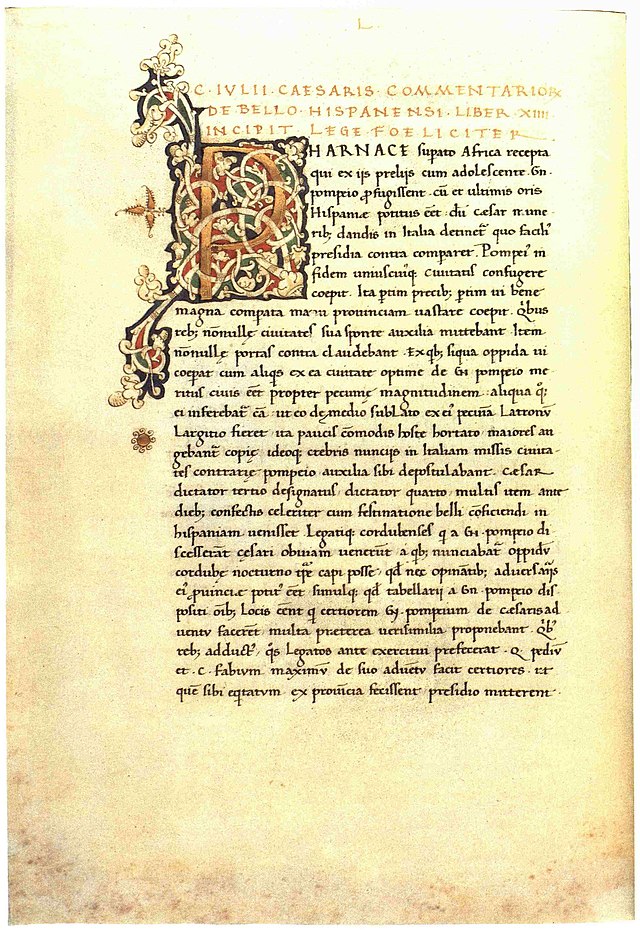 L
C · IVLII · CAESARIS · COMMENTARIORṼ
DE BELLO · HISPANENSI · LIBER · XIIII ·
INCIPIT LEGE · FOELICITER
PHARNACE supato Africa recepta
qui ex ijs prelijs cum adolescente · Gn ·
pompeio ꝓfugissent · cũ et ultimis oris
Hispanię potitus eẽt · dũ Cæsar mune
rib; dandis in Italia detineť quo facili
presidia contra compareť · Pompei in
fidem uniusciuiq; ciuitatis confugere
coepit · Ita ꝑtim precib; ꝑtim ui bene
magna compata manu prouinciam uastare coepit · Qͥbus
reb; nonnullę ciuitates sua sponte auxilia mittebant · Item
nonnullę portas contra claudebant · Ex qb; siqua oppida ui
coepat cum aliqs ex ea ciuitate optime de Gn pompeio me
ritus ciuis eẽt propter pecunię magnitudinem · aliqua
ei inferebať cã · ut eo de medio sublato ex ei pecuña Latronũ
Largitio fieret · ita paucis cõmodis hoste hortato maiores au
gebanť copię ideoq; crebris nuncijs in Italiam missis ciuita
tes contrarię pompeio auxilia sibi depostulabant · Cæsar
dictator tertio designatus · dictator quarto · multis item ante
dieb; confectis celeriter cum festinatione belli cõficiendi in
hispaniam uenisset · Legatiq; cordubenses q a Gn · pompeio di
scesserãt cęsari obuiam uenerũt · a qb; nunciabať oppidũ
cordubę nocturno tꝑe capi posse · qđ nec opinãtib; aduersarijs
eĩ ꝓuincię potitꝰ eẽt simulq; qđ tabellarij a Gn · pompeio dis
positi oĩb; Locis eẽnt q certiorem Gn · pompeium de cæsaris ad
uentu faceret · multa præterea uerisimilia proponebant · Qͥb
reb; adductꝰ · qͦs Legatos ante exercitui prefecerat · Q · pediũ
et · C · fabium maximũ de suo aduẽtu facit certiores · ut
quẽ sibi eqͥtatum ex prouĩcia fecissent presidio mitterent ·